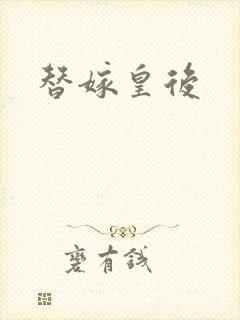 替嫁皇後
有錢